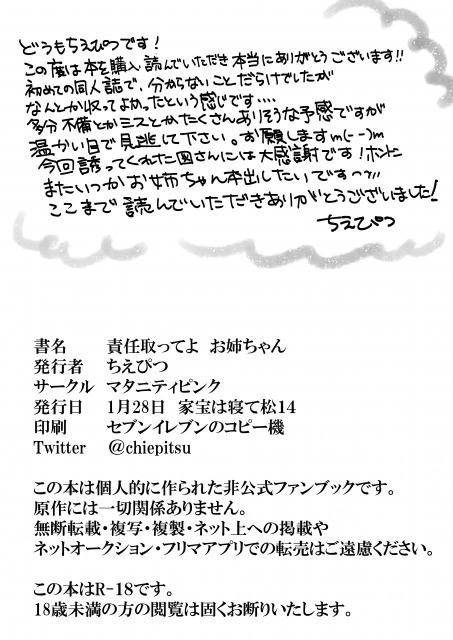 どうもちえぴつです!
この度は本を購入、読んでいただき本当にありがとうございます!!
初めての同人誌で、分からないことだらけでしたが
なんとか収ってよかったという感じです....
多分不備とかミスとかたくさんありそうな予感ですが
温かい目で見逃して下さい。お願しますm(--)m
今回誘ってくれた二国さんには大感謝です!ホントに
またいつかお姉ちゃん本出したいですのッ!!
ここまで読んでいただきありがとうございました!
ちえぴつ
書名 責任取ってよ お姉ちゃん
発行者 ちえぴつ
サークル マタニティピンク
発行日 1月28日 家宝は寝て松14
印刷 セブンイレブンのコピー機
Twitter @chiepitsu
この本は個人的に作られた非公式ファンブックです。
原作には一切関係ありません。
無断転載・複写・複製・ネット上への掲載や
ネットオークション・フリマアプリでの転売はご遠慮ください。
この本はR-18です。
18歳未満の方の閲覧は固くお断りいたします。